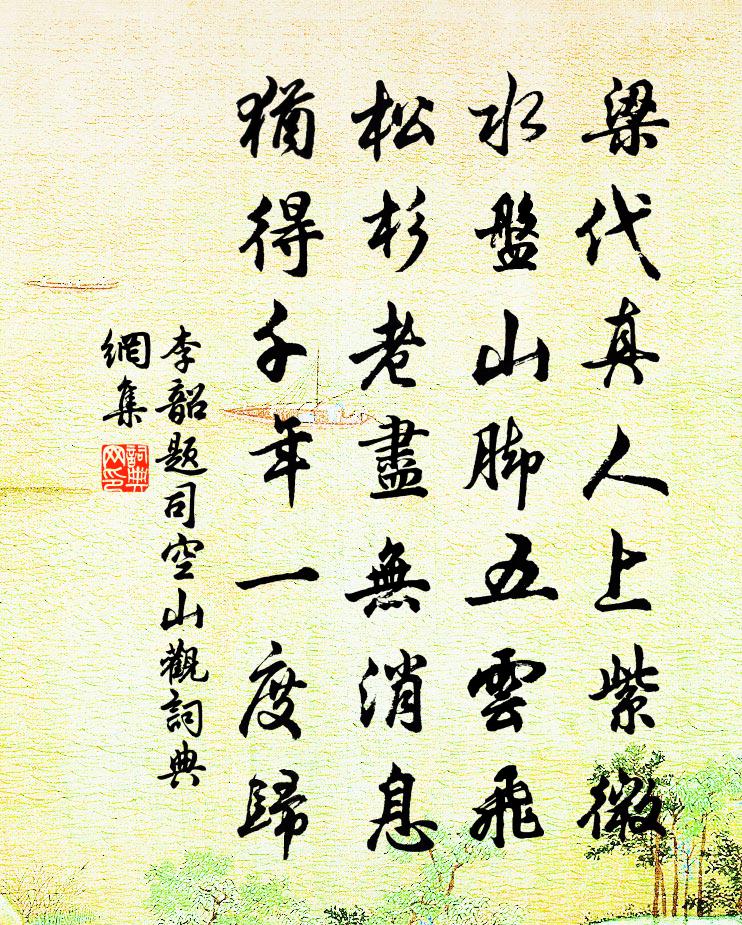 梁代真人上紫微
水盤山脚五雲飛
松杉老盡無消息
猶得千年一度歸
李韶題司空山觀詞典
網集
詞典
网印